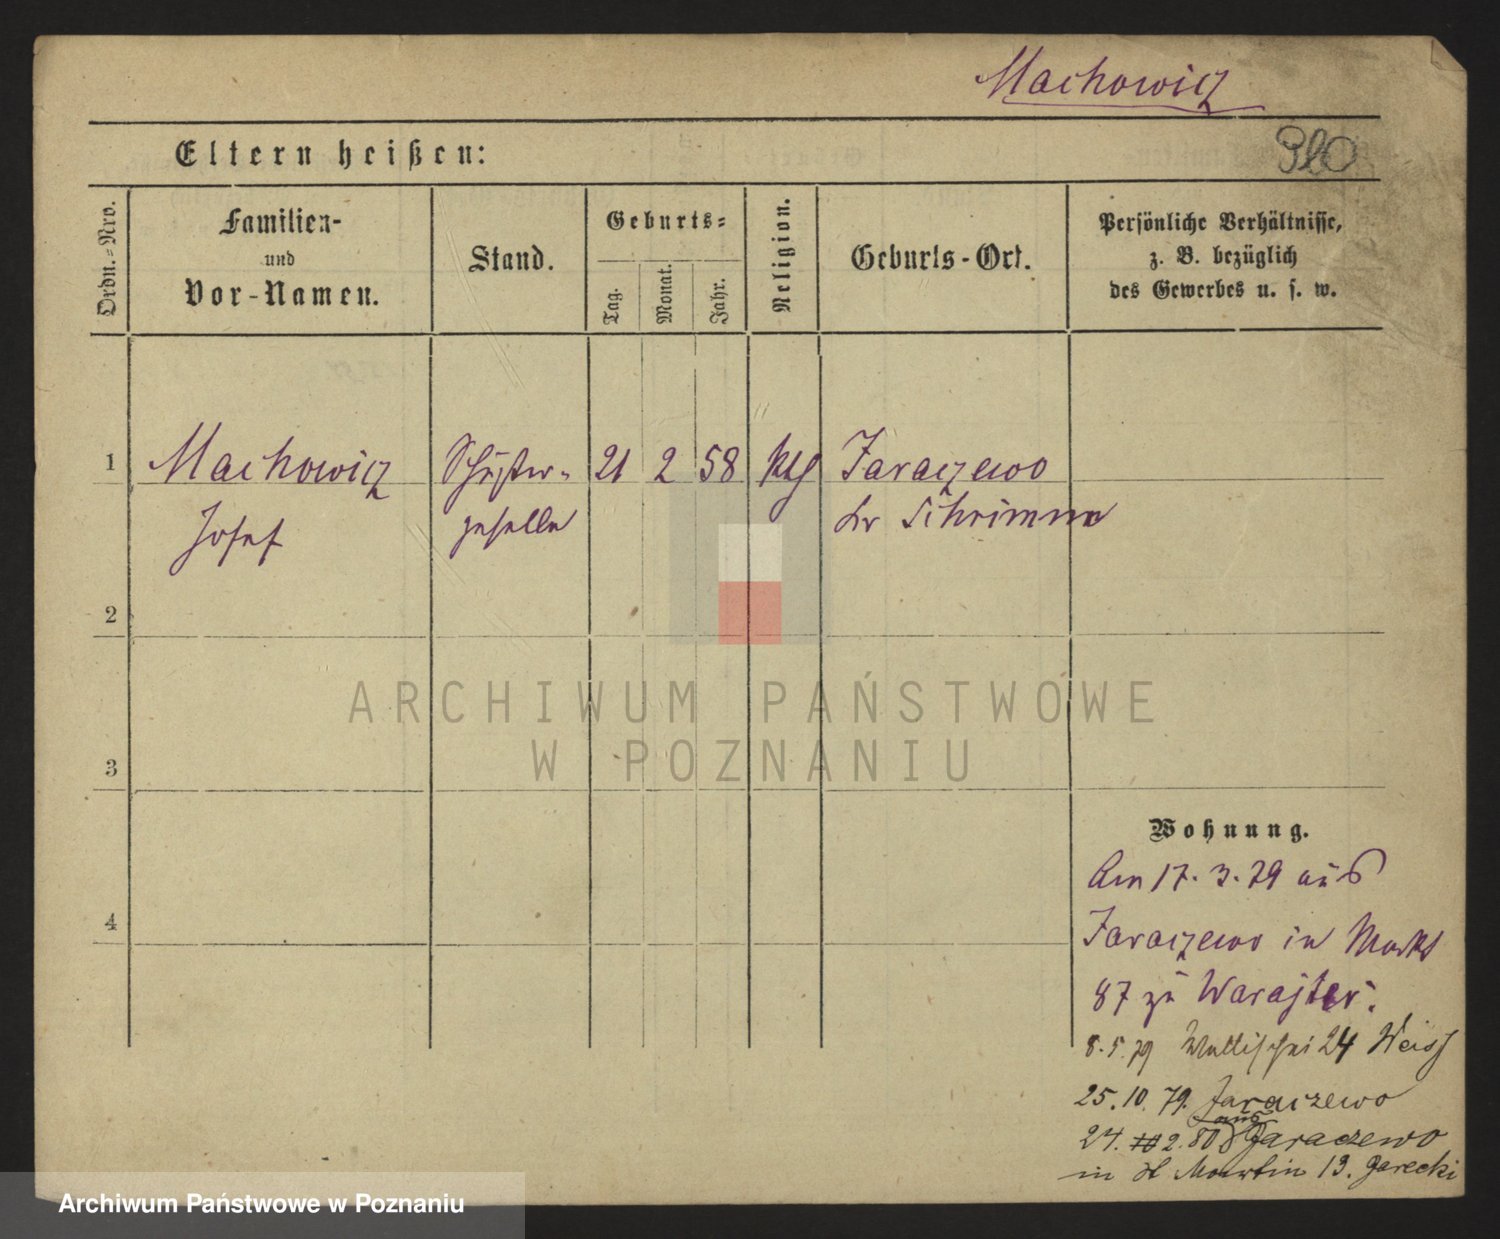 Machowicz
Eltern heißen:
Ordn.-Nro.
Familien-
und
Vor-Namen.
Stand.
Geburts-
Tag.
Monat.
Jahr.
Religion.
Geburts-Ort.
Persönliche Verhältnisse,
z. B. bezüglich
des Gewerbes u. s. w.
1
Machowicz
Josef
Schuster-
geselle
21
2
58
kth
Jaraczewo
Kr Schrimm
2
3
4
ARCHIWUM PAŃSTWOWE
W POZNANIU
Wohnung.
Am 17. 3. 79 aus
Jaraczewo in Markt
87 zu
8. 5. 79 Wallischei 24 Weiss
25. 10. 79. Jaraczewo
24. 2. 80 aus Jaraczewo
in St Martin 13. Garecki
Archiwum Państwowe w Poznaniu